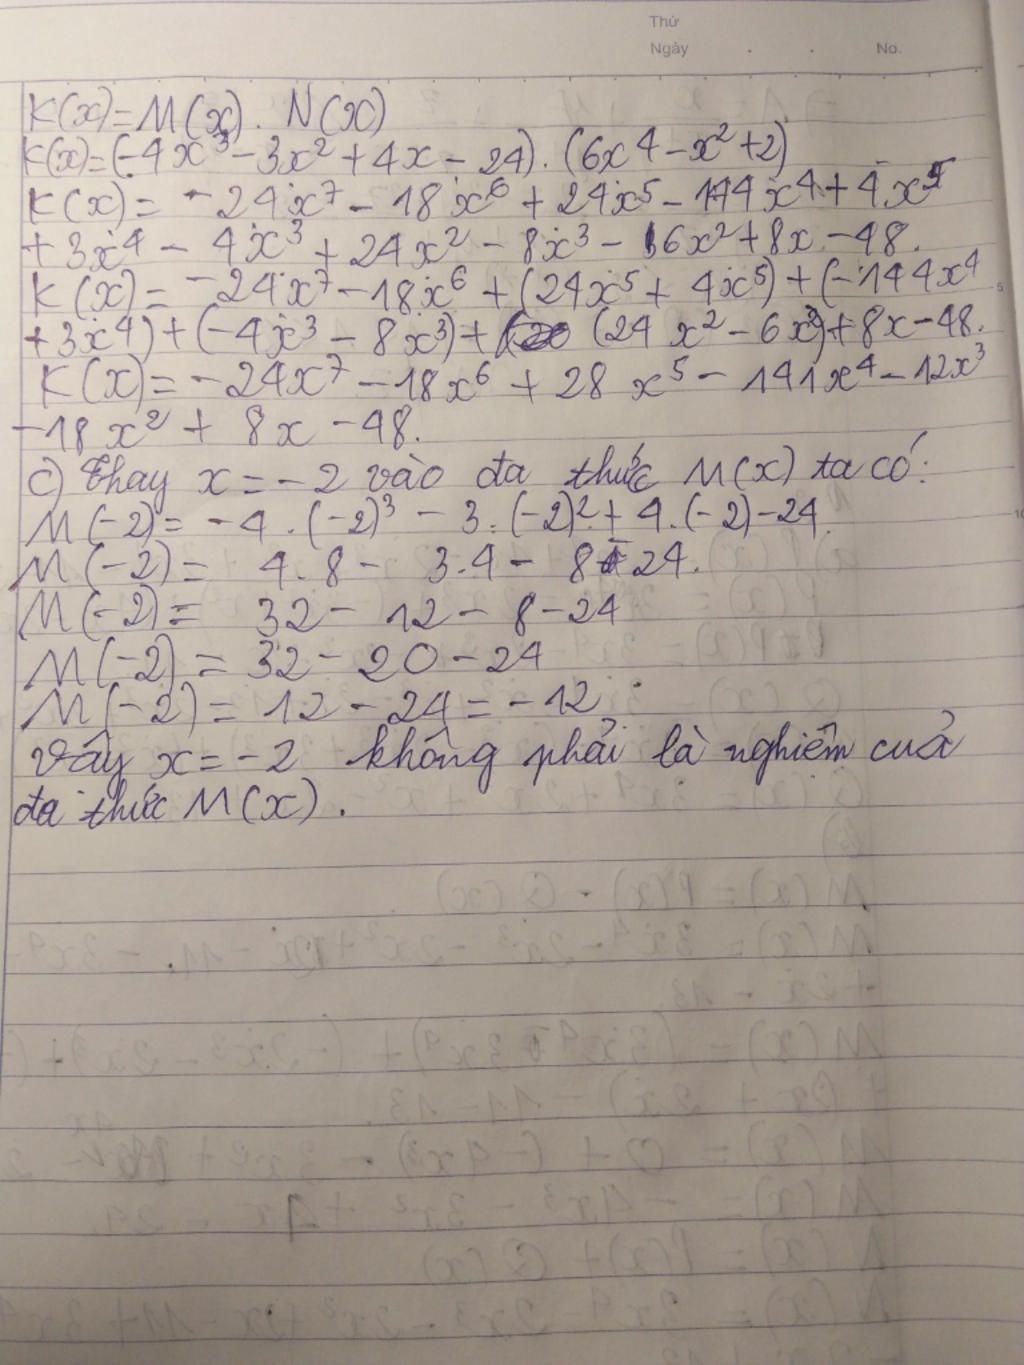 Thứ
Ngày . . No.
K(x) = M(x) . N(x)
K(x) = (-4x³ - 3x² + 4x - 24) . (6x⁴ - x² + 2)
K(x) = -24x⁷ - 18x⁶ + 24x⁵ - 144x⁴ + 4x⁵
+ 3x⁴ - 4x³ + 24x² - 8x³ - 6x² + 8x - 48.
K(x) = -24x⁷ - 18x⁶ + (24x⁵ + 4x⁵) + (-144x⁴
+ 3x⁴) + (-4x³ - 8x³) + (24x² - 6x²) + 8x - 48.
K(x) = -24x⁷ - 18x⁶ + 28x⁵ - 141x⁴ - 12x³
-18x² + 8x - 48.
c) Thay x = -2 vào đa thức M(x) ta có:
M(-2) = -4 . (-2)³ - 3 . (-2)² + 4 . (-2) - 24.
M(-2) = 4.8 - 3.4 - 8 - 24.
M(-2) = 32 - 12 - 8 - 24
M(-2) = 32 - 20 - 24
M(-2) = 12 - 24 = -12
Vậy x = -2 không phải là nghiệm cuả
đa thức M(x).